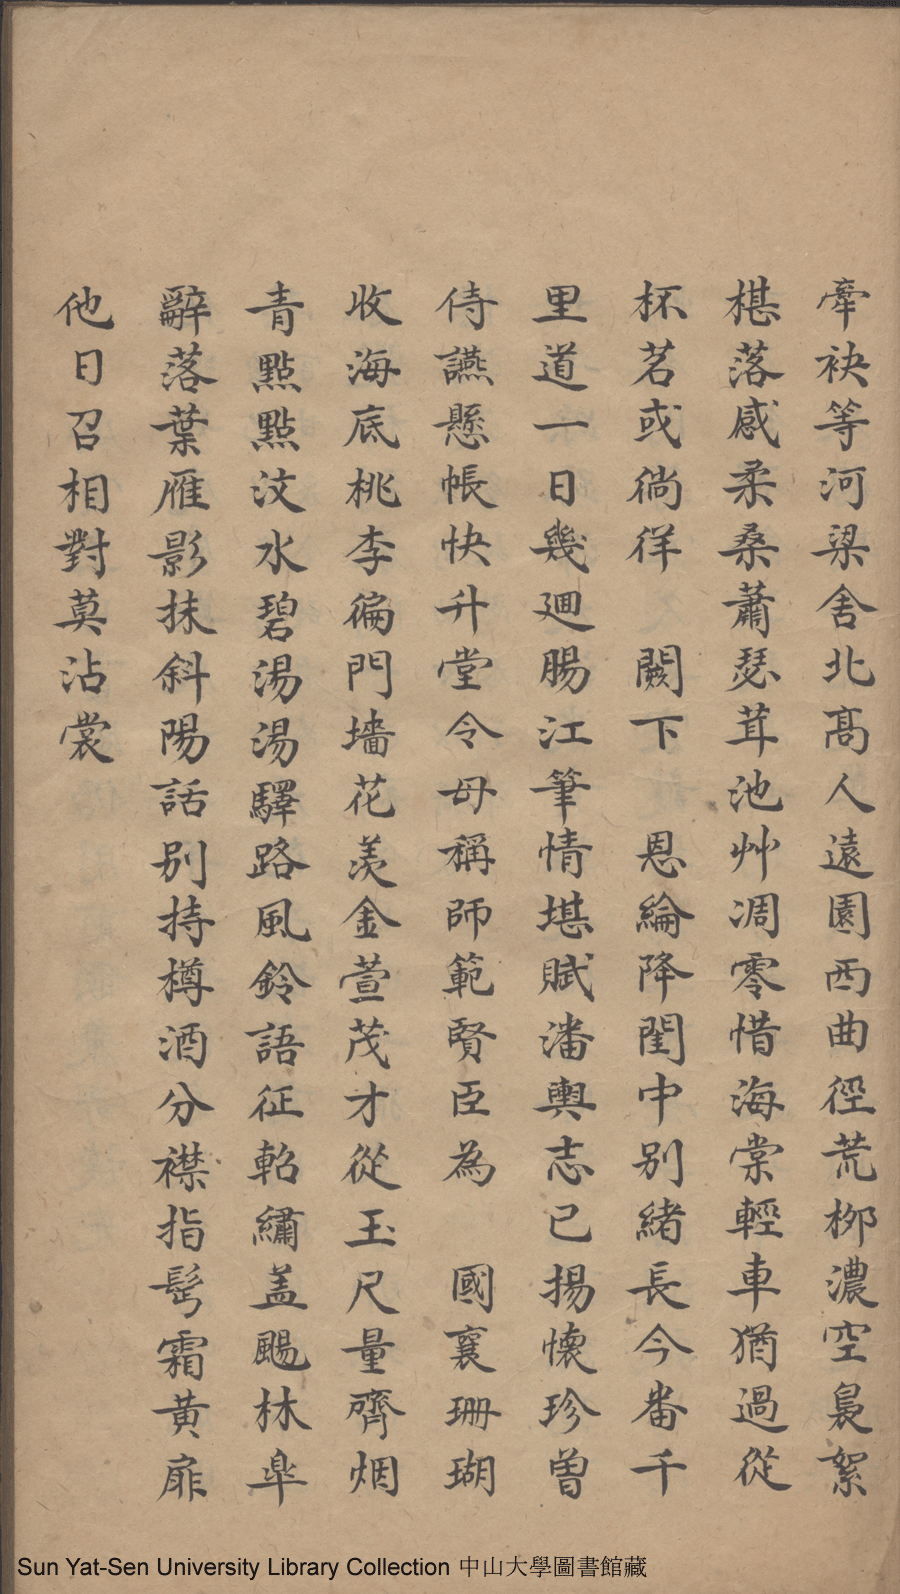 牽袂等河梁舍北髙人遠園西曲徑荒栁濃空裊絮
椹落感柔桑蕭瑟茸池艸凋零惜海棠輕車猶過從
杯茗或徜徉　闕下　恩綸降閨中別緒長今番千
里道一日幾廻腸江筆情堪賦潘輿志已揚懷珍曾
侍讌懸帳快升堂令母稱師範賢臣為　國襄珊瑚
收海底桃李徧門墻花羨金萱茂才從玉尺量齊烟
青點點汶水碧湯湯驛路風鈴語征軺繡盖颺林臯
辭落葉雁影抹斜陽話別持樽酒分襟指髩霜黄扉
他日召相對莫沾裳
Sun Yat-Sen University Library Collection 中山大學圖書館藏